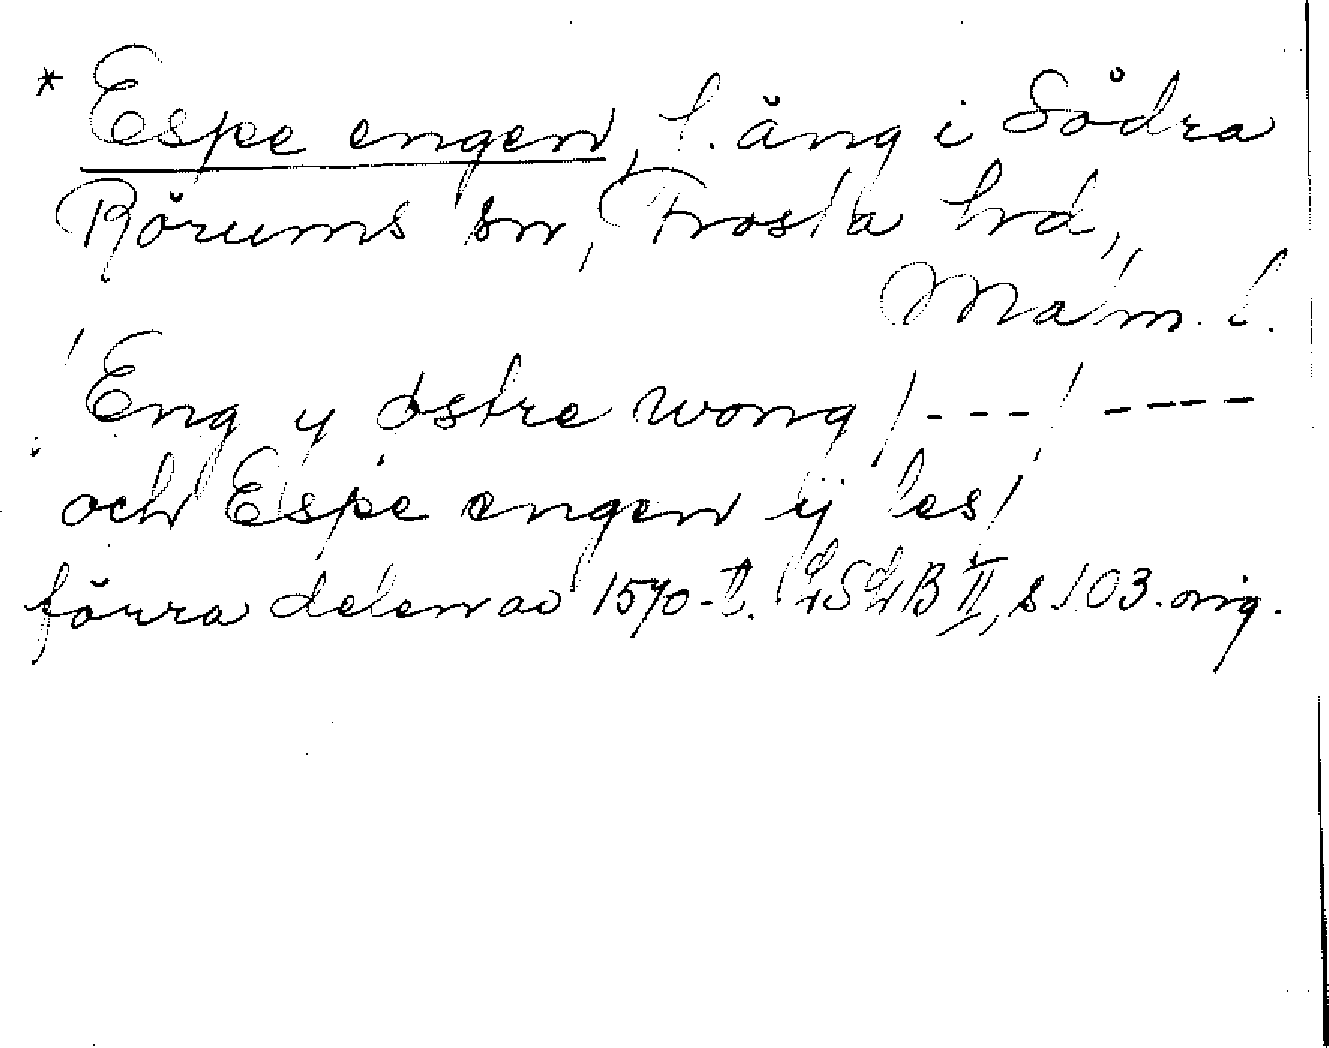 * Espe engen, f. äng i Södra
Rörums sn, Frosta hd,
Malm. l.
Eng y östre wong /---/ ----
och Espe engen ij les/
förra delen av 1570-t. LSLB II, s 103. orig.